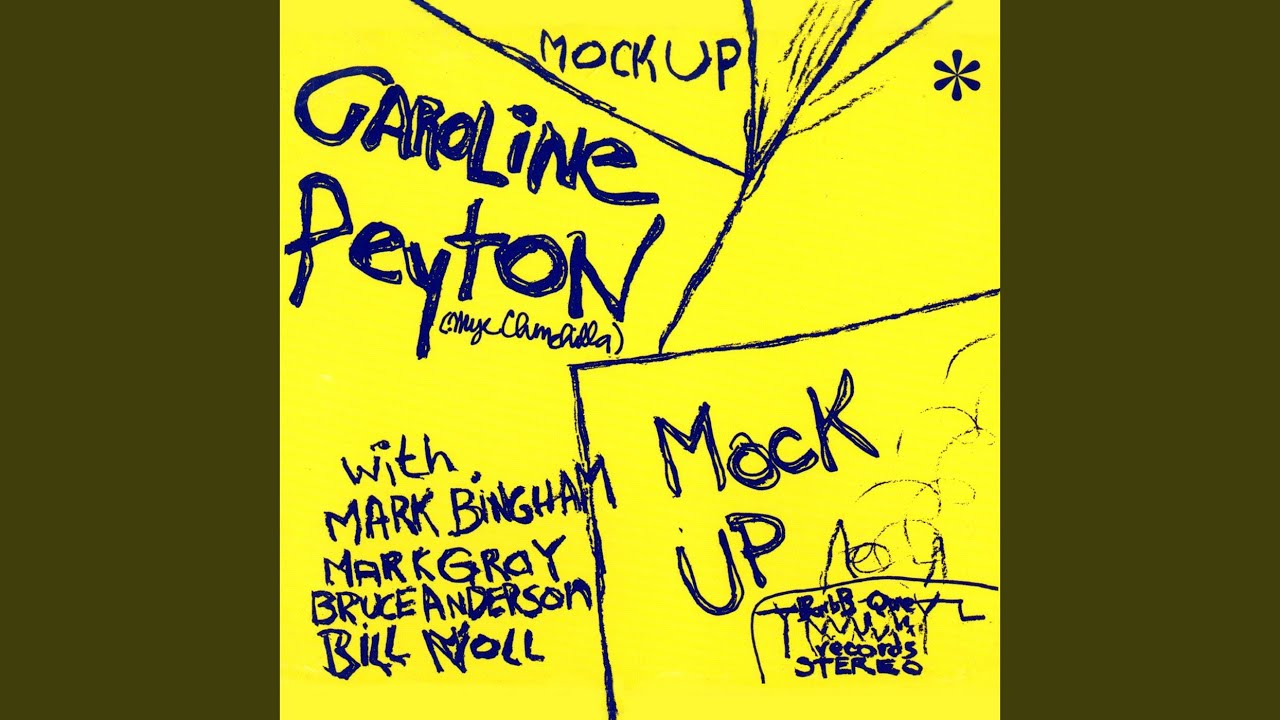 MOCK UP
*
CAROLINE
PEYTON
with
MARK BINGHAM
MARK GRAY
BRUCE ANDERSON
BILL NOLL
MOCK
UP
BarbB Que
records
STEREO